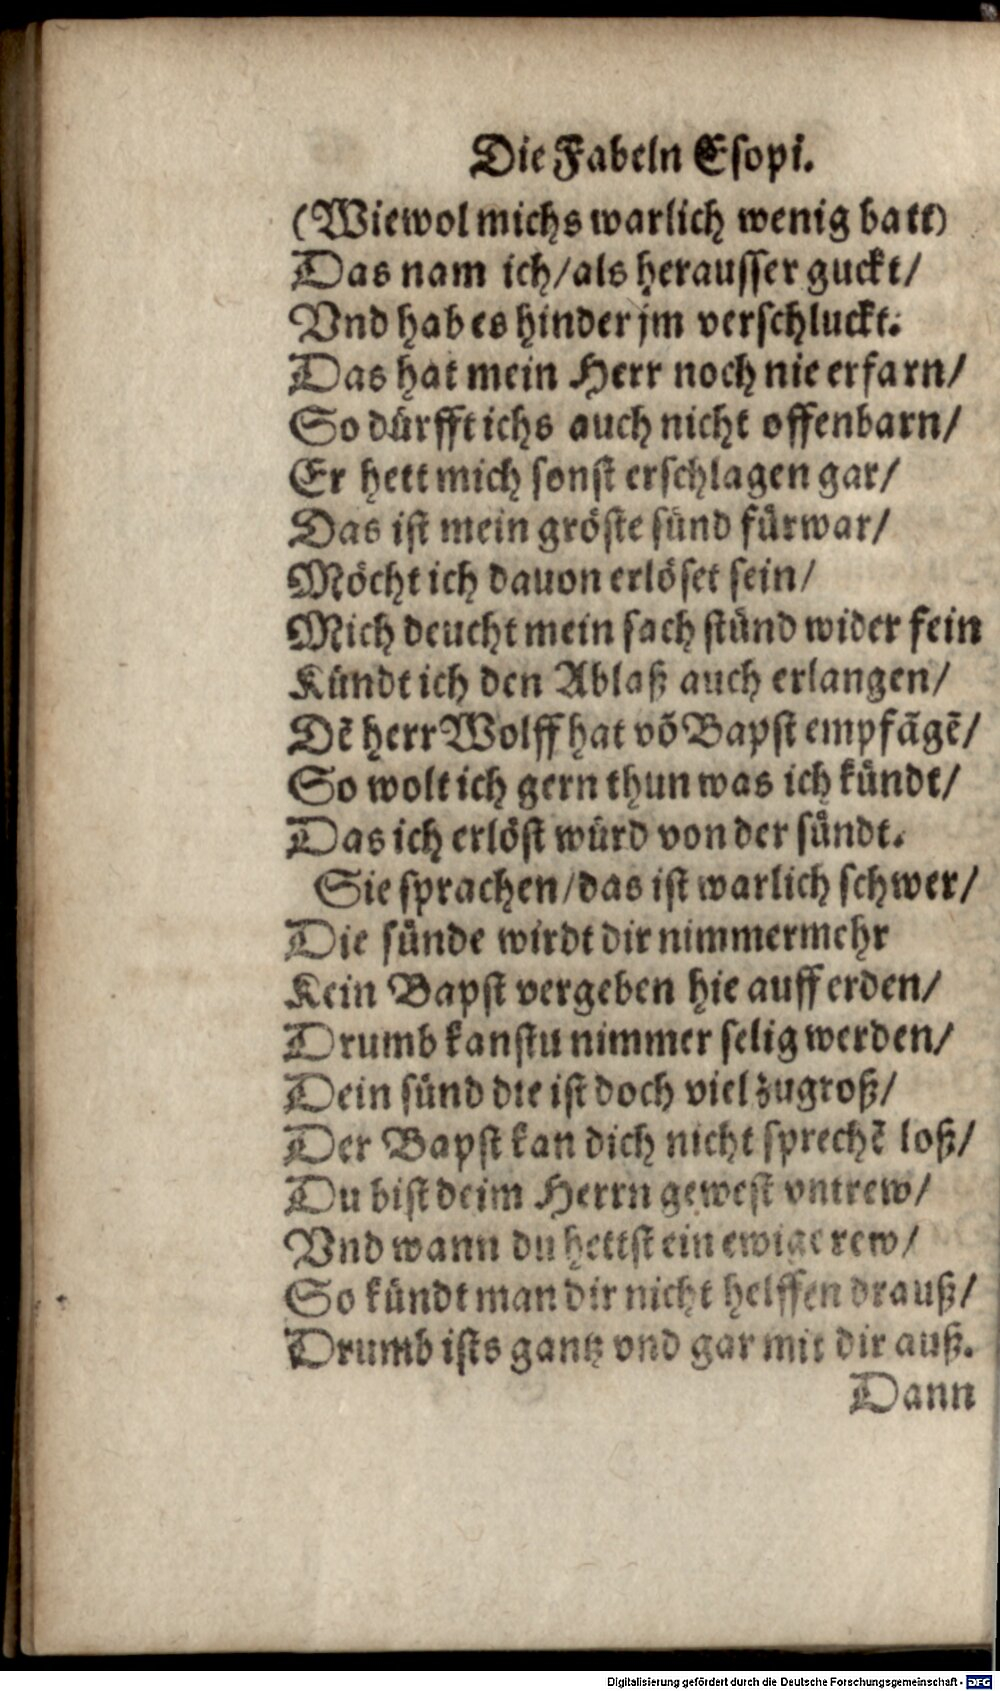 Die Fabeln Esopi.
(Wiewol michs warlich wenig batt)
Das nam ich/als herausser guckt/
Vnd hab es hinder jm verschluckt.
Das hat mein Herr noch nie erfarn/
So dürfft ichs auch nicht offenbarn/
Er hett mich sonst erschlagen gar/
Das ist mein gröste sünd fürwar/
Möcht ich dauon erlöset sein/
Mich deucht mein sach stünd wider fein
Kündt ich den Ablaß auch erlangen/
Dẽ herr Wolff hat võ Bapst empfãgẽ/
So wolt ich gern thun was ich kündt/
Das ich erlöst würd von der sündt.
Sie sprachen/das ist warlich schwer/
Die sünde wirdt dir nimmermehr
Kein Bapst vergeben hie auff erden/
Drumb kanstu nimmer selig werden/
Dein sünd die ist doch viel zugroß/
Der Bapst kan dich nicht sprechẽ loß/
Du bist deim Herrn gewest vntrew/
Vnd wann du hettst ein ewige rew/
So kündt man dir nicht helffen drauß/
Drumb ists gantz vnd gar mit dir auß.
Dann
Digitalisierung gefördert durch die Deutsche Forschungsgemeinschaft - DFG